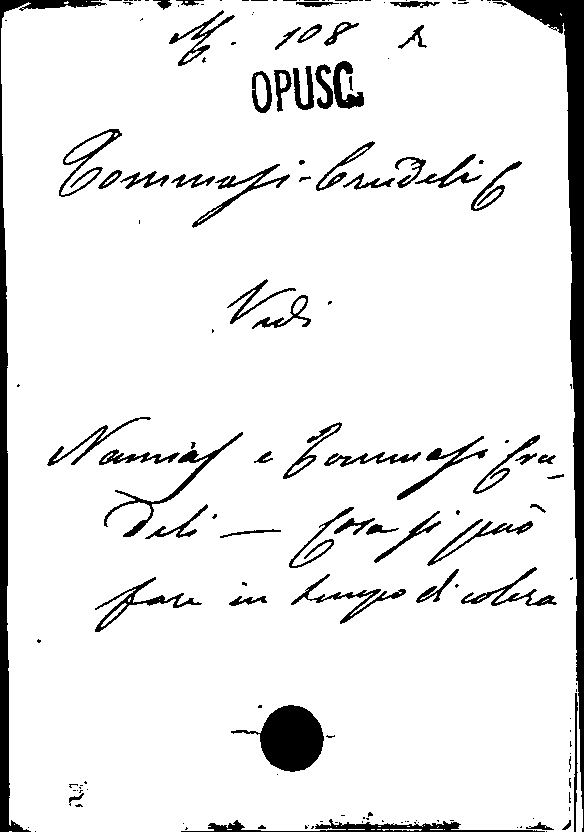 M. 108 2
OPUSC.
Tommasi-Crudeli C
Vedi
Namias e Tommasi Cru-
deli — Cosa si può
fare in tempo di colera